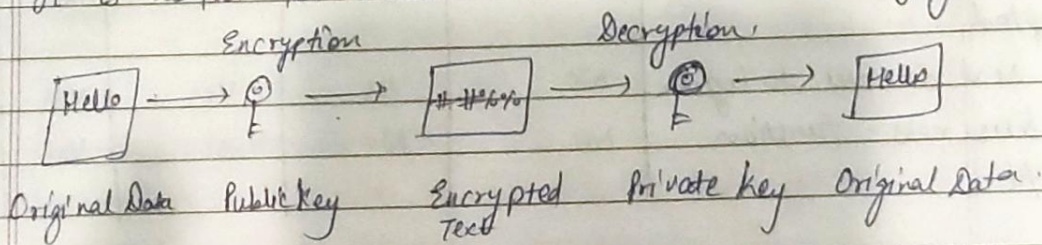 Encryption Decryption.
Hello # #%% Hello
Original Data Public Key Encrypted Text Private Key Original Data.